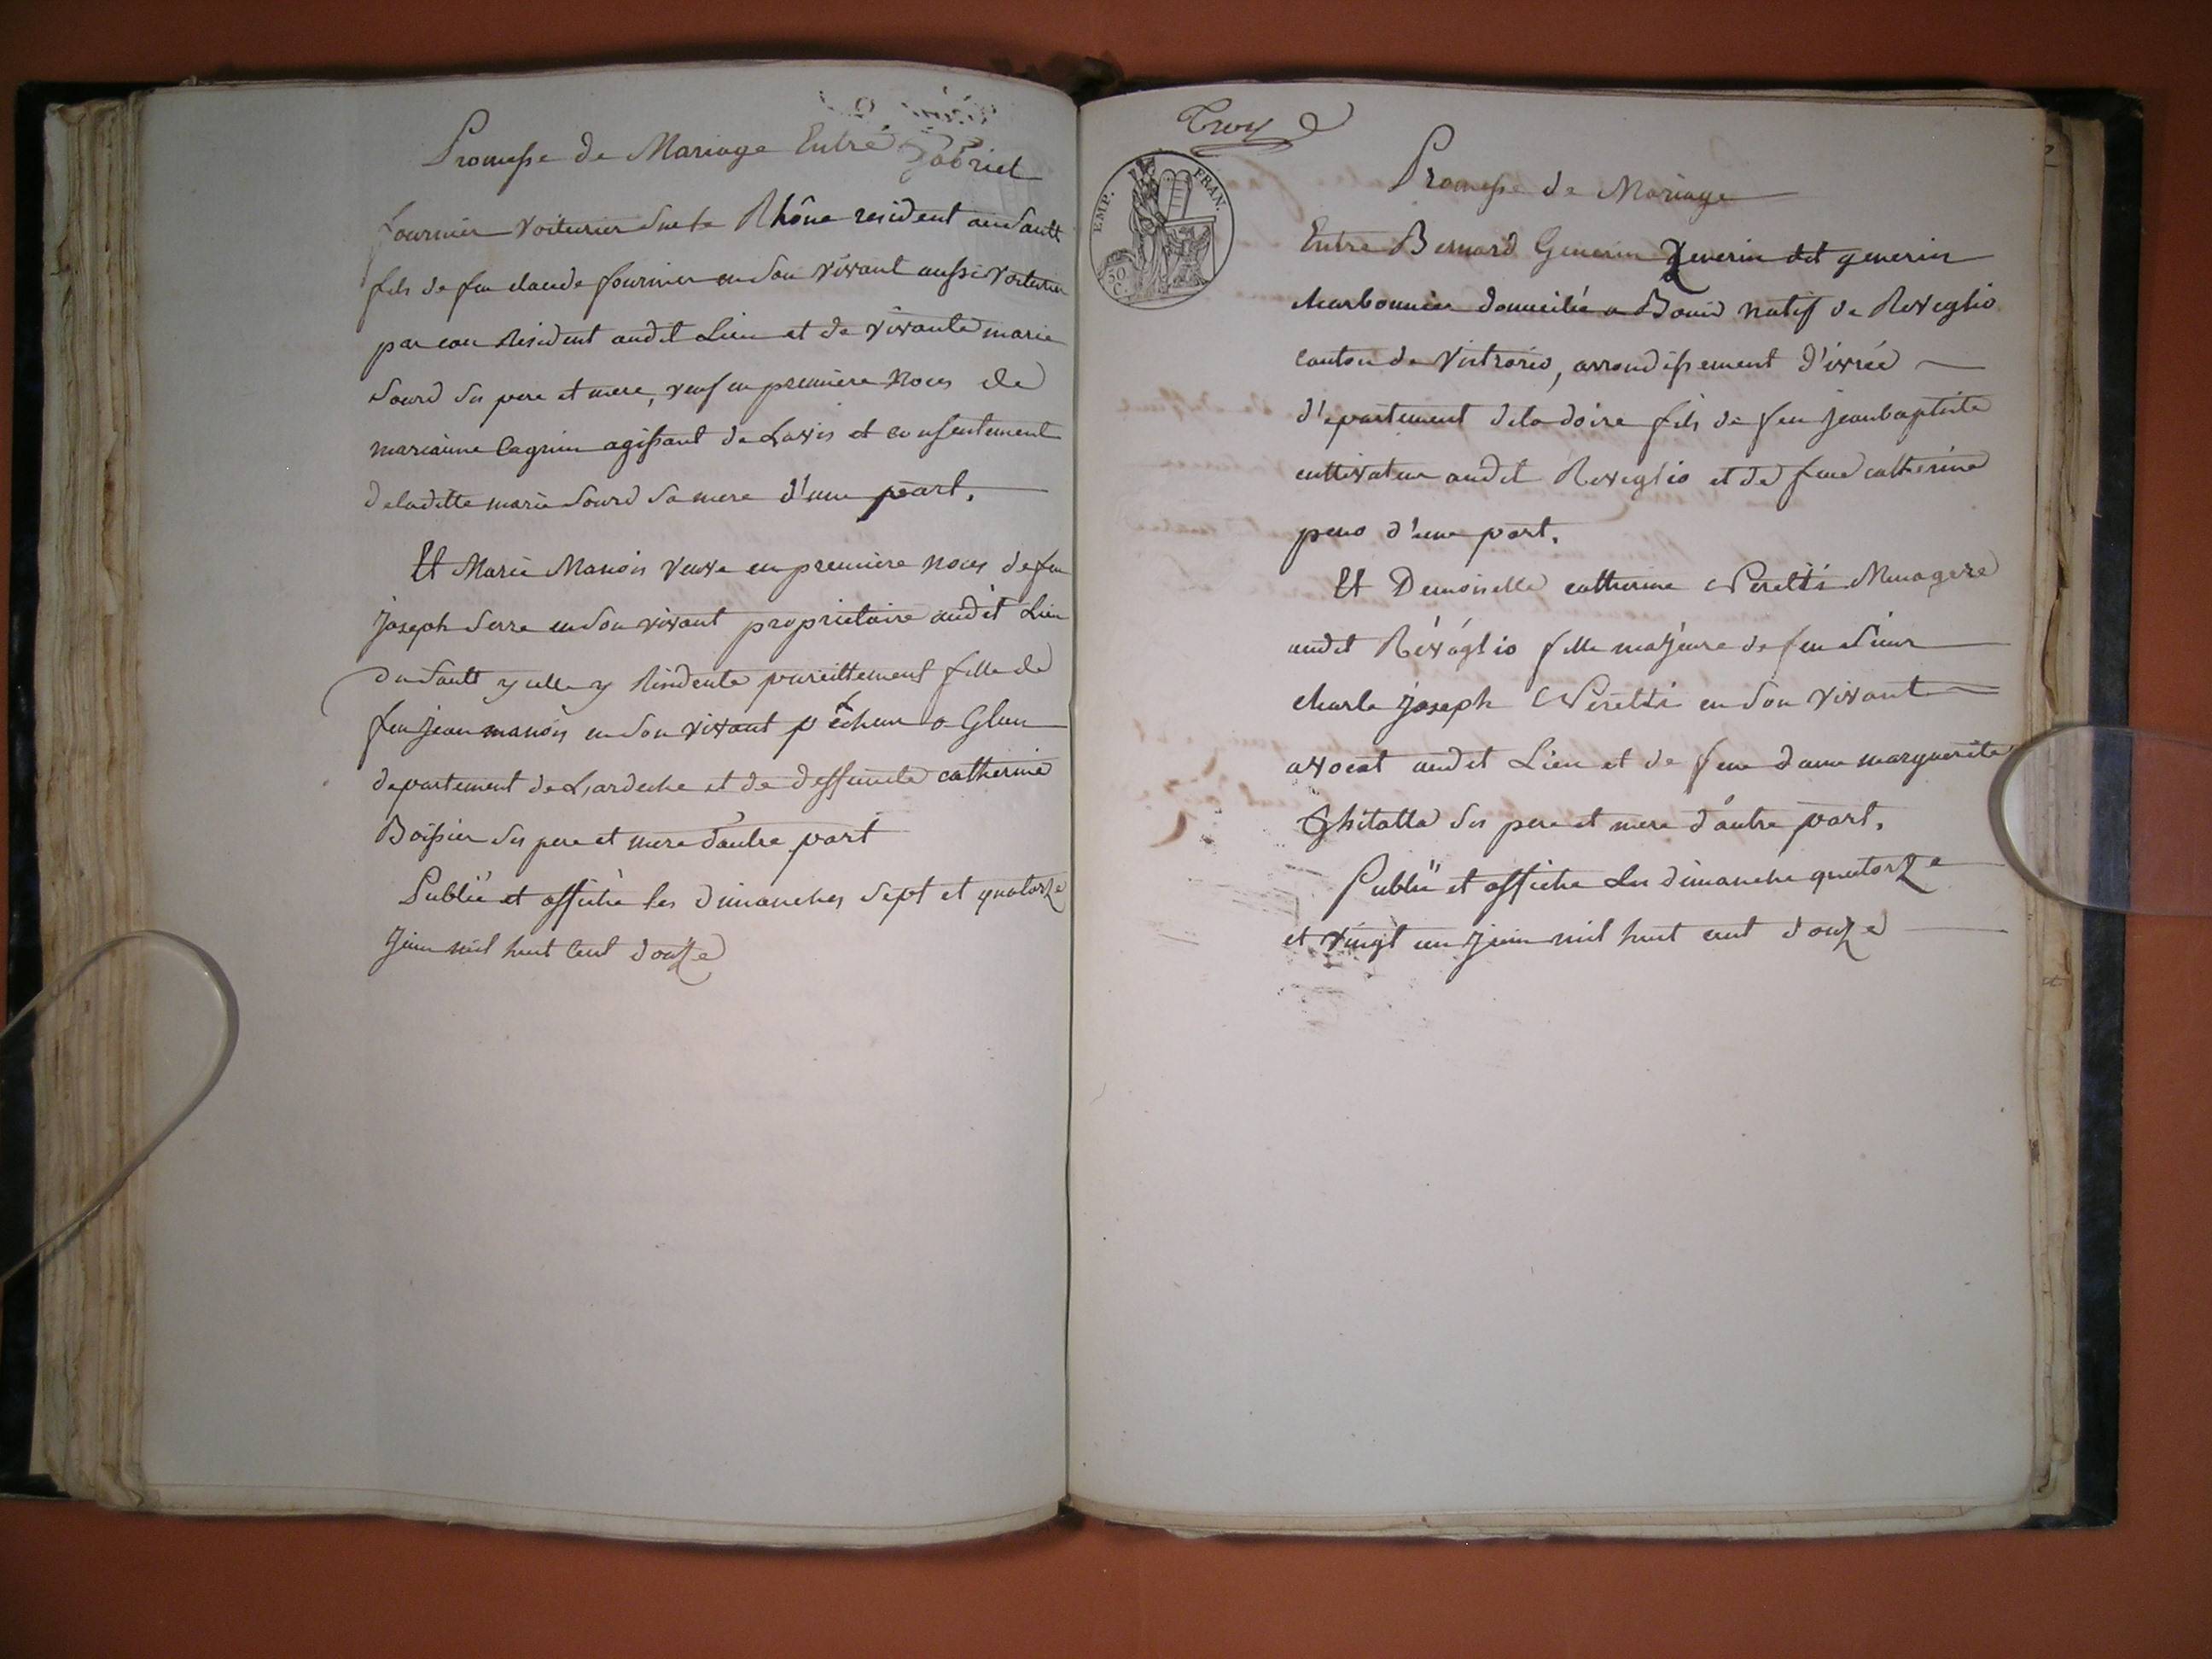 Promesse de Mariage Entre Gabriel
fournier voiturier sur le Rhône resident au Sault
fils de feu claude fournier en son vivant aussi voiturier
par eau Resident audit Lieu et de vivante marie
Sourd ses pere et mere, veuf en premiere Noces de
marianne Cagnin agissant de Lavis et consentement
deladitte marie Sourd sa mere d'une part.
Et Marie Manois veuve en premiere noces de feu
joseph Serre en son vivant proprietaire audit Lieu
du Sault y celle y Residente pareillement fille de
feu jean manois en son vivant pêcheur a Glun
departement de Lardeche et de deffuncte catherine
Boissier ses pere et mere d'autre part
Publié et affiché les dimanches sept et quatorze
juin mil huit cent douze
EMP. FRAN.
50 C.
Promesse de Mariage
Entre Bernard Generin Zeverin dit generin
charbonnier domicilié a Bouis natif de Reveglio
canton de Vistrorio, arrondissement d'ivrée
d'epartement dela doire fils de feu jeanbaptiste
cultivateur audit Reveglio et de feue catherine
peno d'une part.
Et Demoiselle catherine Peretti Menagere
audit Révéglio fille majeure de feu sieur
charle joseph Peretti en son vivant
avocat audit Lieu et de feue dame marguerite
Ghitalla ses pere et mere d'autre part.
Publié et affiche les dimanche quatorze
et vingt un juin mil huit cent douze